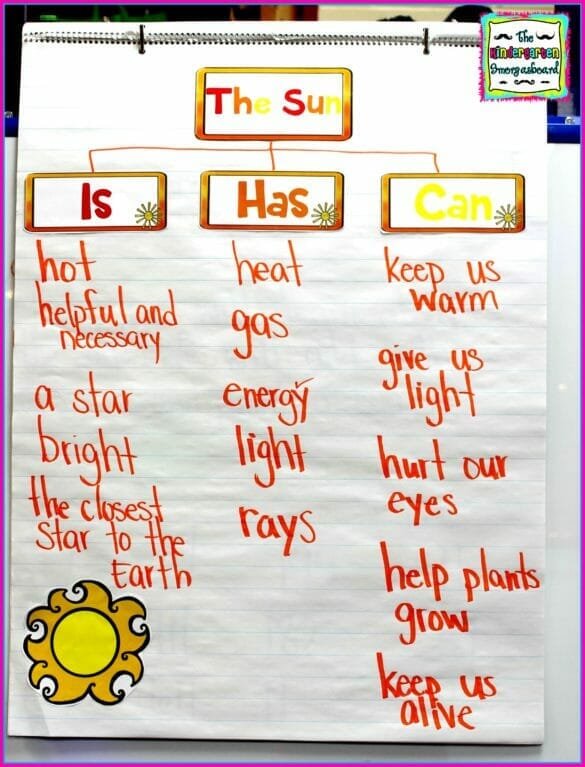 The
Kindergarten
Smorgasboard
The Sun
Is
hot
helpful and
necessary
a star
bright
the closest
star to the
Earth
Has
heat
gas
energy
light
rays
Can
keep us
warm
give us
light
hurt our
eyes
help plants
grow
keep us
alive